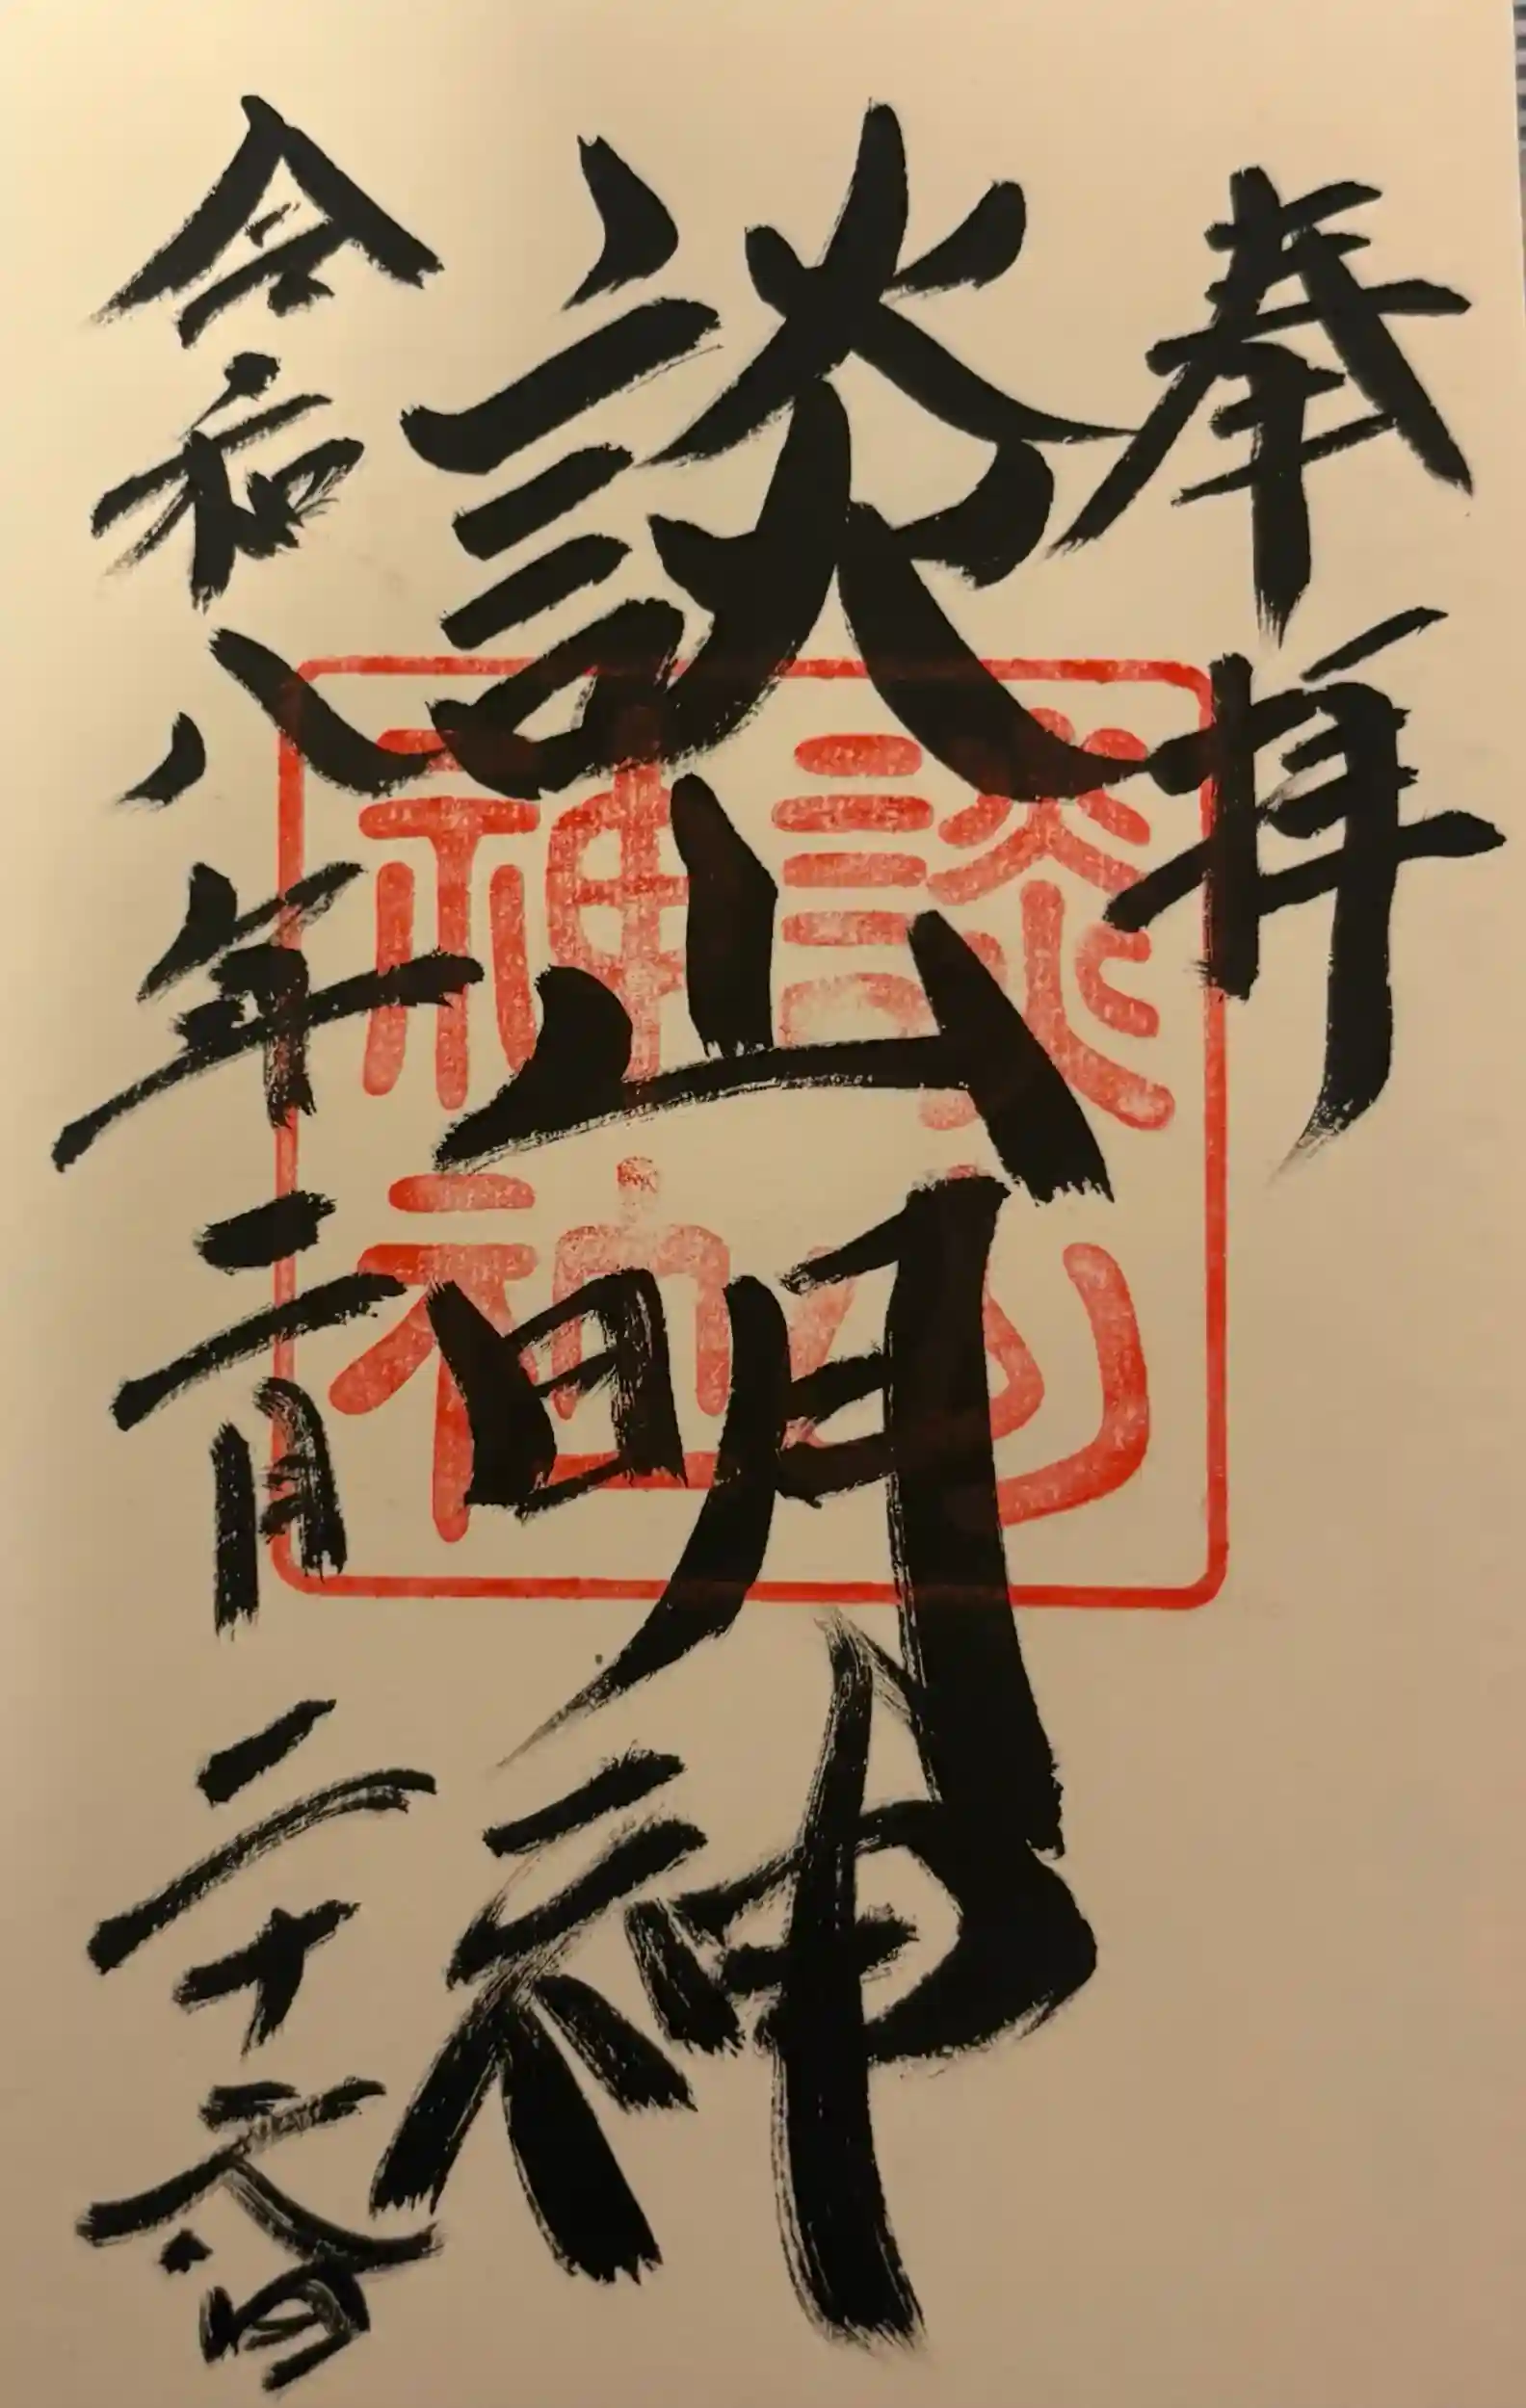 奉拝
談山明神
談山
神社
令和八年二月二十六日